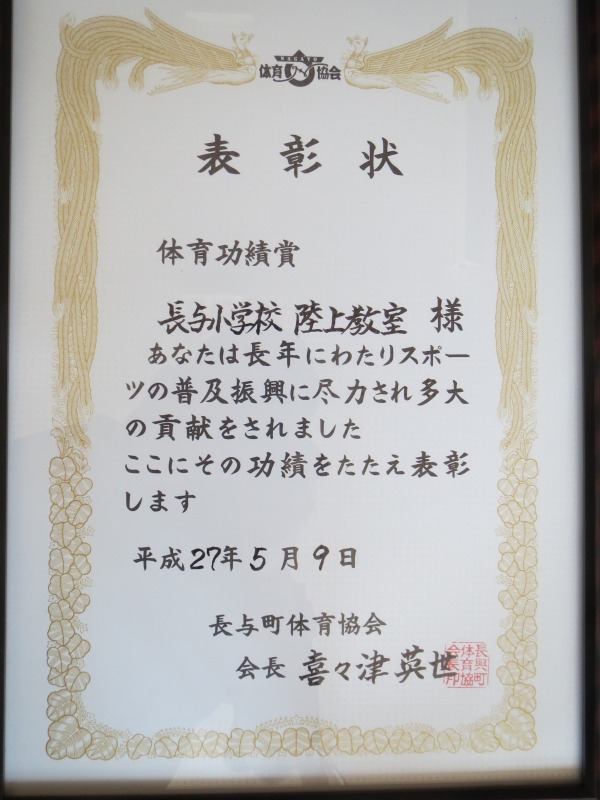 NAGAYO
体育 協会
表彰状
体育功績賞
長与小学校 陸上教室 様
あなたは長年にわたりスポー
ツの普及振興に尽力され多大
の貢献をされました
ここにその功績をたたえ表彰
します
平成27年5月9日
長与町体育協会
会長 喜々津英世
長與町
体育協
会長印